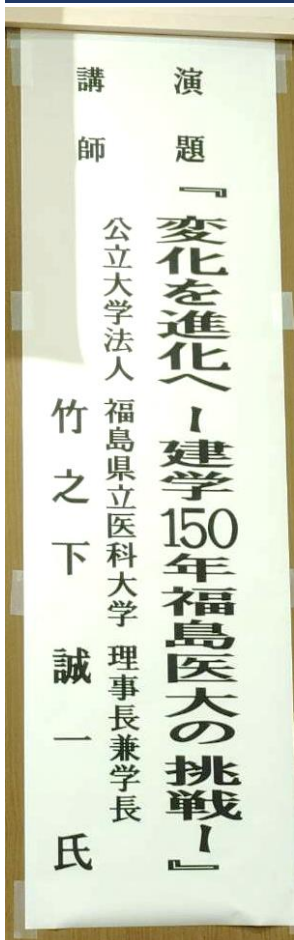 演題 『変化を進化へ ー建学150年福島医大の挑戦ー』
講師 公立大学法人 福島県立医科大学 理事長兼学長
竹之下 誠一 氏